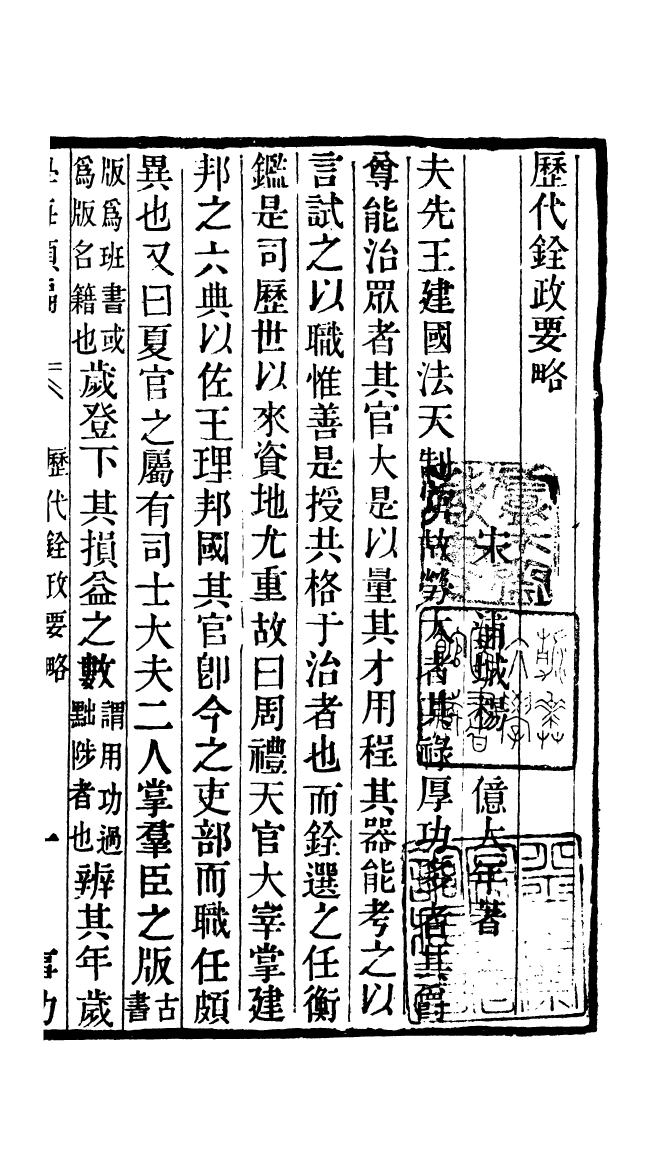 歷代銓政要略
宋 浦城楊 億大年著
夫先王建國法天制爵故勞大者其祿厚功多者其爵
尊能治眾者其官大是以量其才用程其器能考之以
言試之以職惟善是授共格于治者也而銓選之任衡
鑑是司歷世以來資地尤重故曰周禮天官大宰掌建
邦之六典以佐王理邦國其官卽今之吏部而職任頗
異也又曰夏官之屬有司士大夫二人掌羣臣之版古書
版爲班書或爲版名籍也歲登下其損益之數謂用功過黜陟者也辨其年歲
歷代銓政要略
一